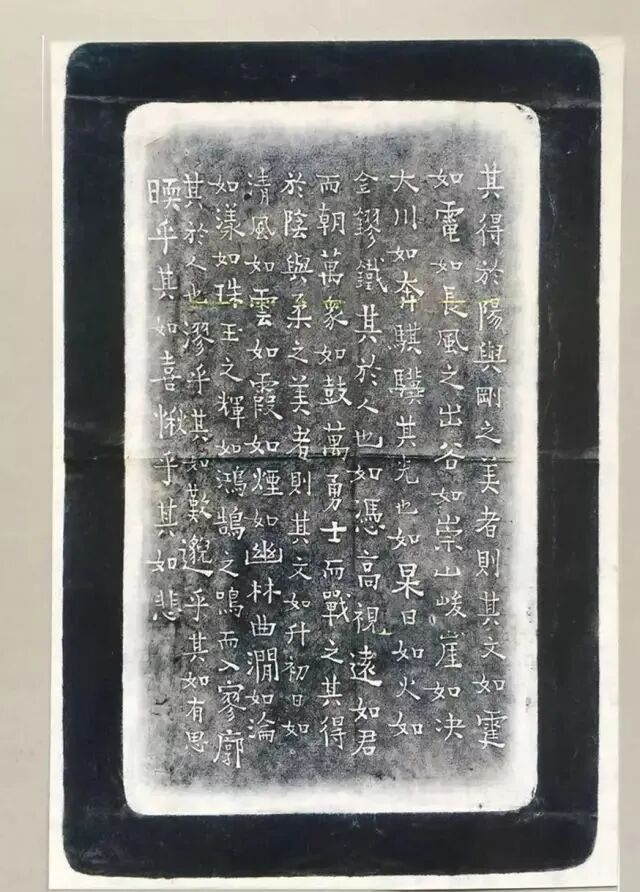 其得於陽與剛之美者則其文如霆
如電如長風之出谷如崇山峻崖如決
大川如奔騏驥其光也如杲日如火如
金鏐鐵其於人也如憑高視遠如君
而朝萬衆如鼓萬勇士而戰之其得
於陰與柔之美者則其文如升初日如
清風如雲如霞如煙如幽林曲澗如淪
如漾如珠玉之輝如鴻鵠之鳴而入寥廓
其於人也漻乎其如歎邈乎其如有思
㬉乎其如喜愀乎其如悲